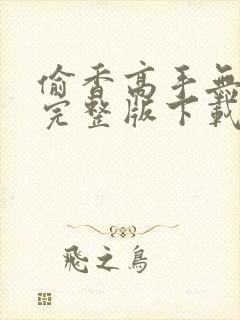 偷香高手無
完整版下載
飛之鳥